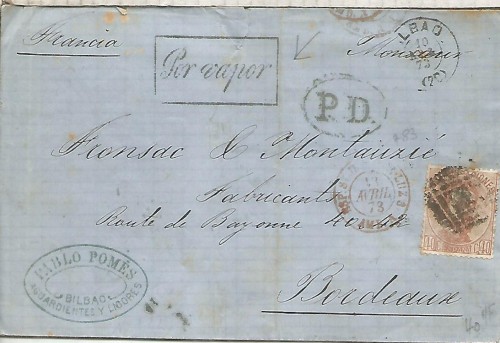 Francia
Por vapor
Monsieur
BILBAO
10
73
(20)
P.D.
Fronsac & Montauzié
Fabricants
Route de Bayonne
Bordeaux
11
AVRIL
73
PABLO POMÉS
BILBAO
AGUARDIENTES Y LICORES
40